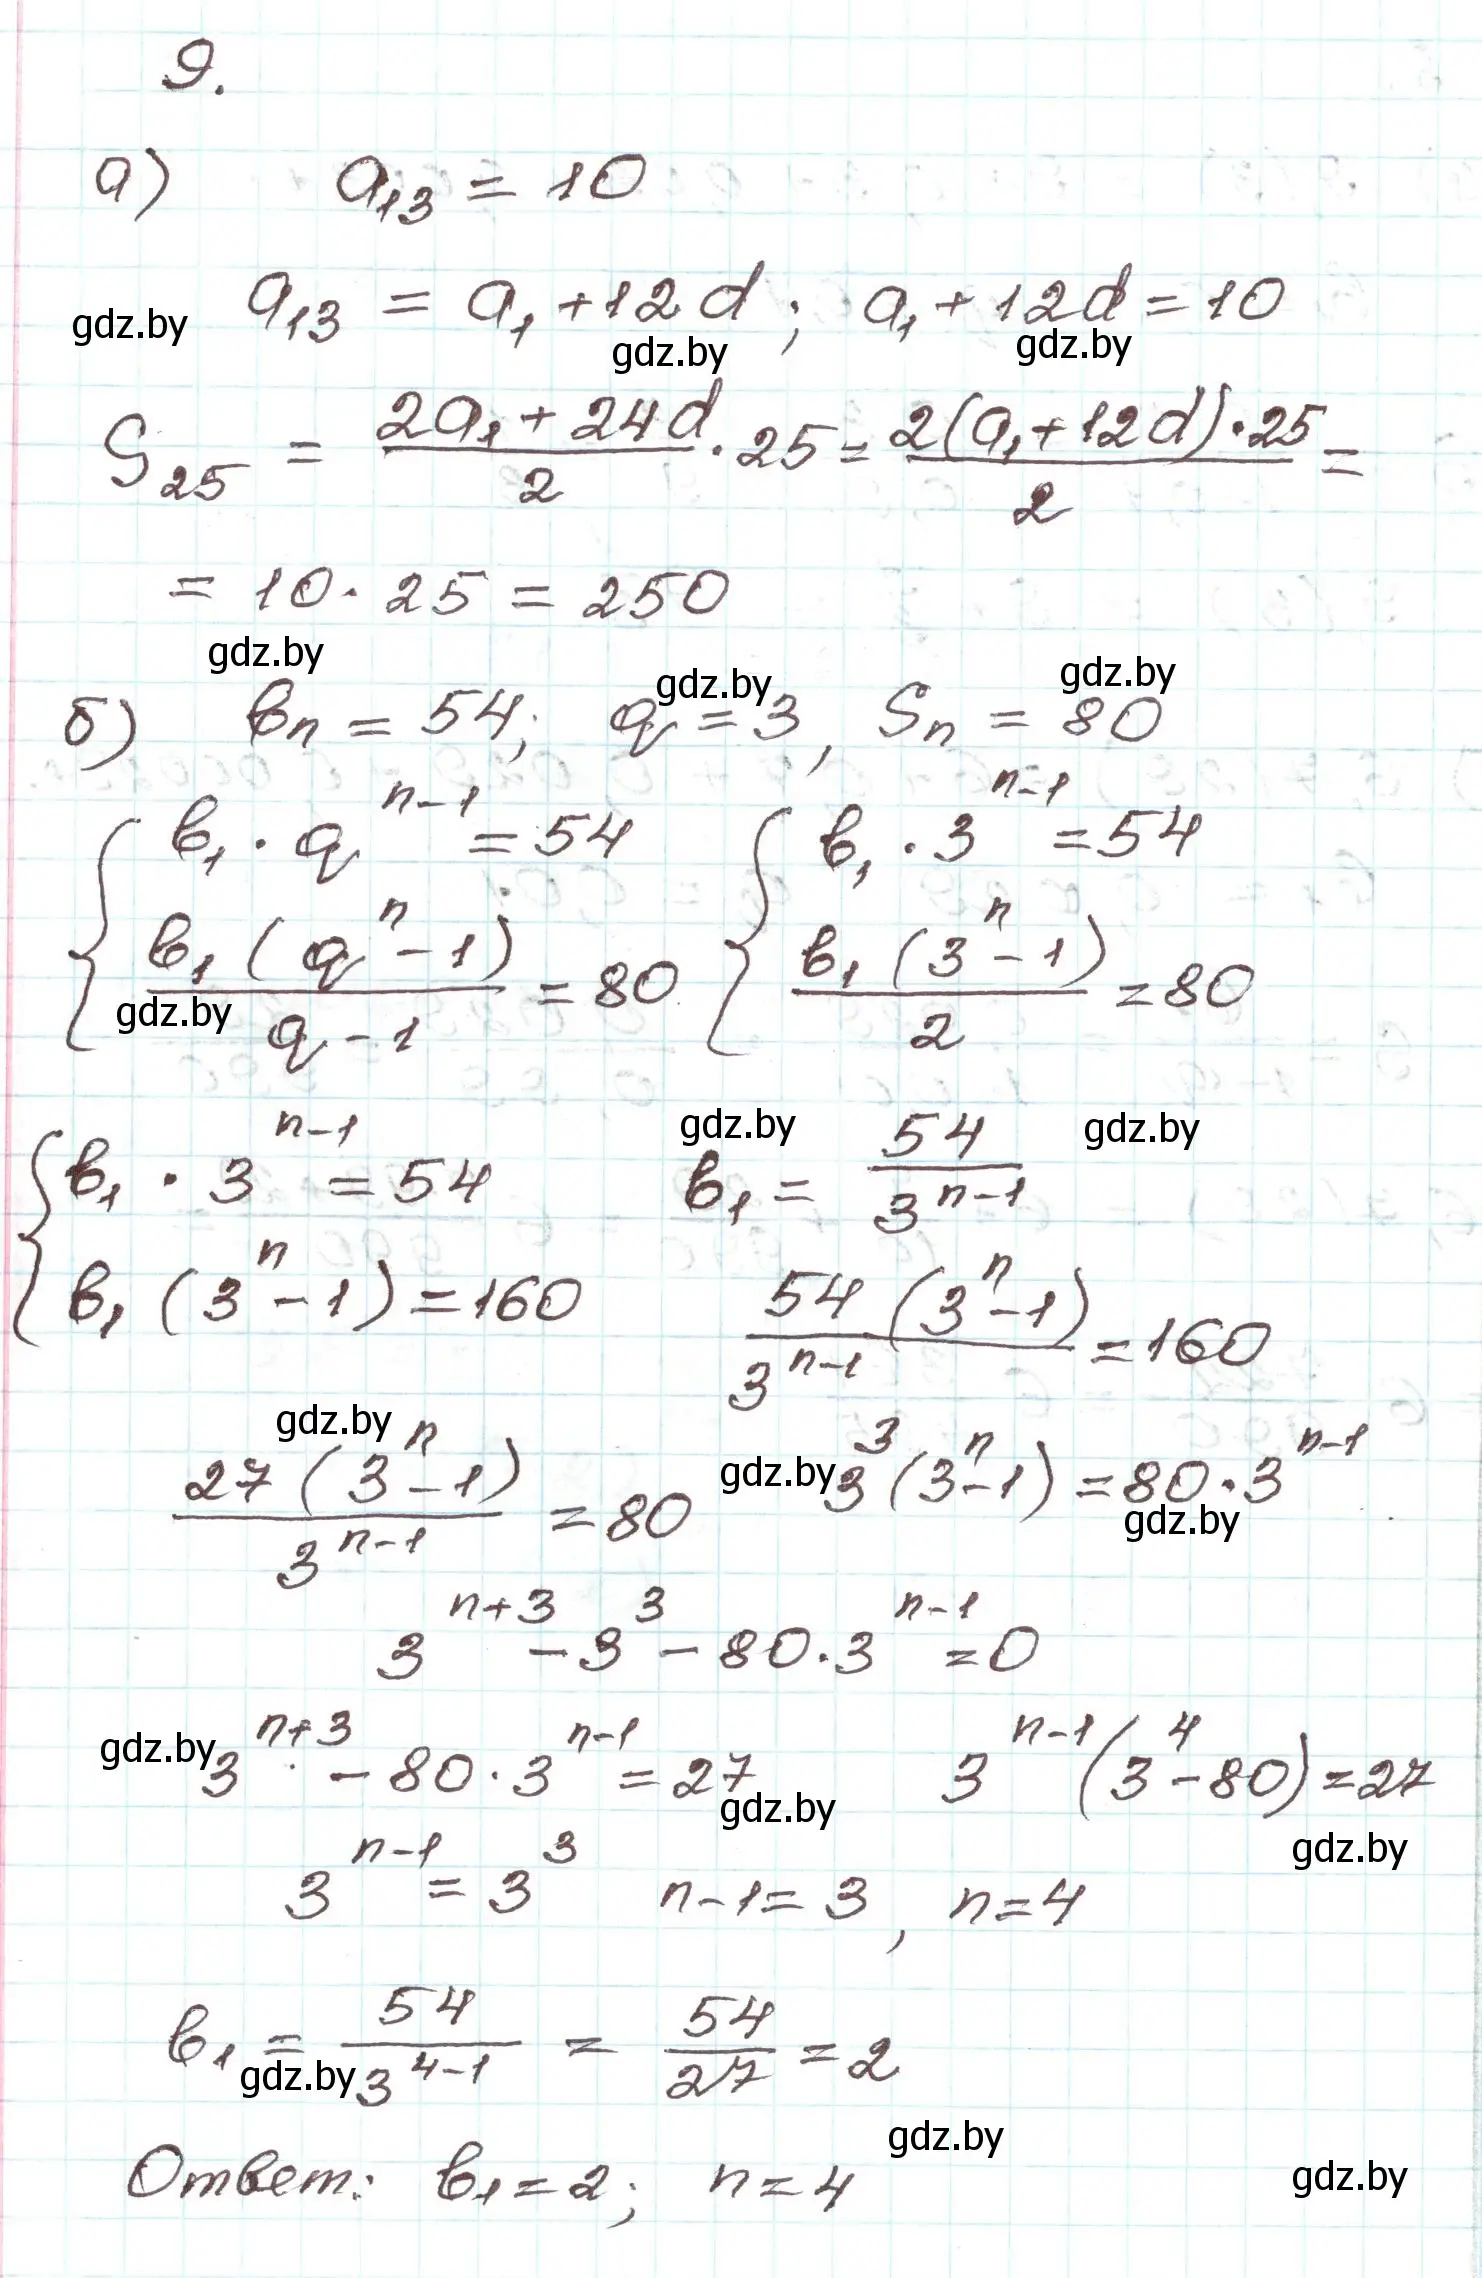 9.
а) a₁₃ = 10
gdz.by a₁₃ = a₁ + 12d; a₁ + 12d = 10
gdz.by gdz.by
S₂₅ = (2a₁ + 24d)/2 · 25 = (2(a₁ + 12d) · 25)/2 =
= 10 · 25 = 250
gdz.by gdz.by gdz.by
б) bₙ = 54; q = 3, Sₙ = 80
{ b₁ · qⁿ⁻¹ = 54 { b₁ · 3ⁿ⁻¹ = 54
b₁(qⁿ - 1)/(q - 1) = 80 b₁(3ⁿ - 1)/2 = 80
gdz.by
{ b₁ · 3ⁿ⁻¹ = 54 gdz.by b₁ = 54/3ⁿ⁻¹ gdz.by
b₁(3ⁿ - 1) = 160 54(3ⁿ - 1)/3ⁿ⁻¹ = 160
gdz.by
27(3ⁿ - 1)/3ⁿ⁻¹ = 80 gdz.by 3³(3ⁿ - 1) = 80 · 3ⁿ⁻¹
gdz.by
3ⁿ⁺³ - 3³ - 80 · 3ⁿ⁻¹ = 0
gdz.by 3ⁿ⁺³ - 80 · 3ⁿ⁻¹ = 27 3ⁿ⁻¹(3⁴ - 80) = 27
gdz.by gdz.by
3ⁿ⁻¹ = 3³ n - 1 = 3, n = 4
b₁ = 54/3⁴⁻¹ = 54/27 = 2
gdz.by
gdz.by
Ответ: b₁ = 2; n = 4 gdz.by